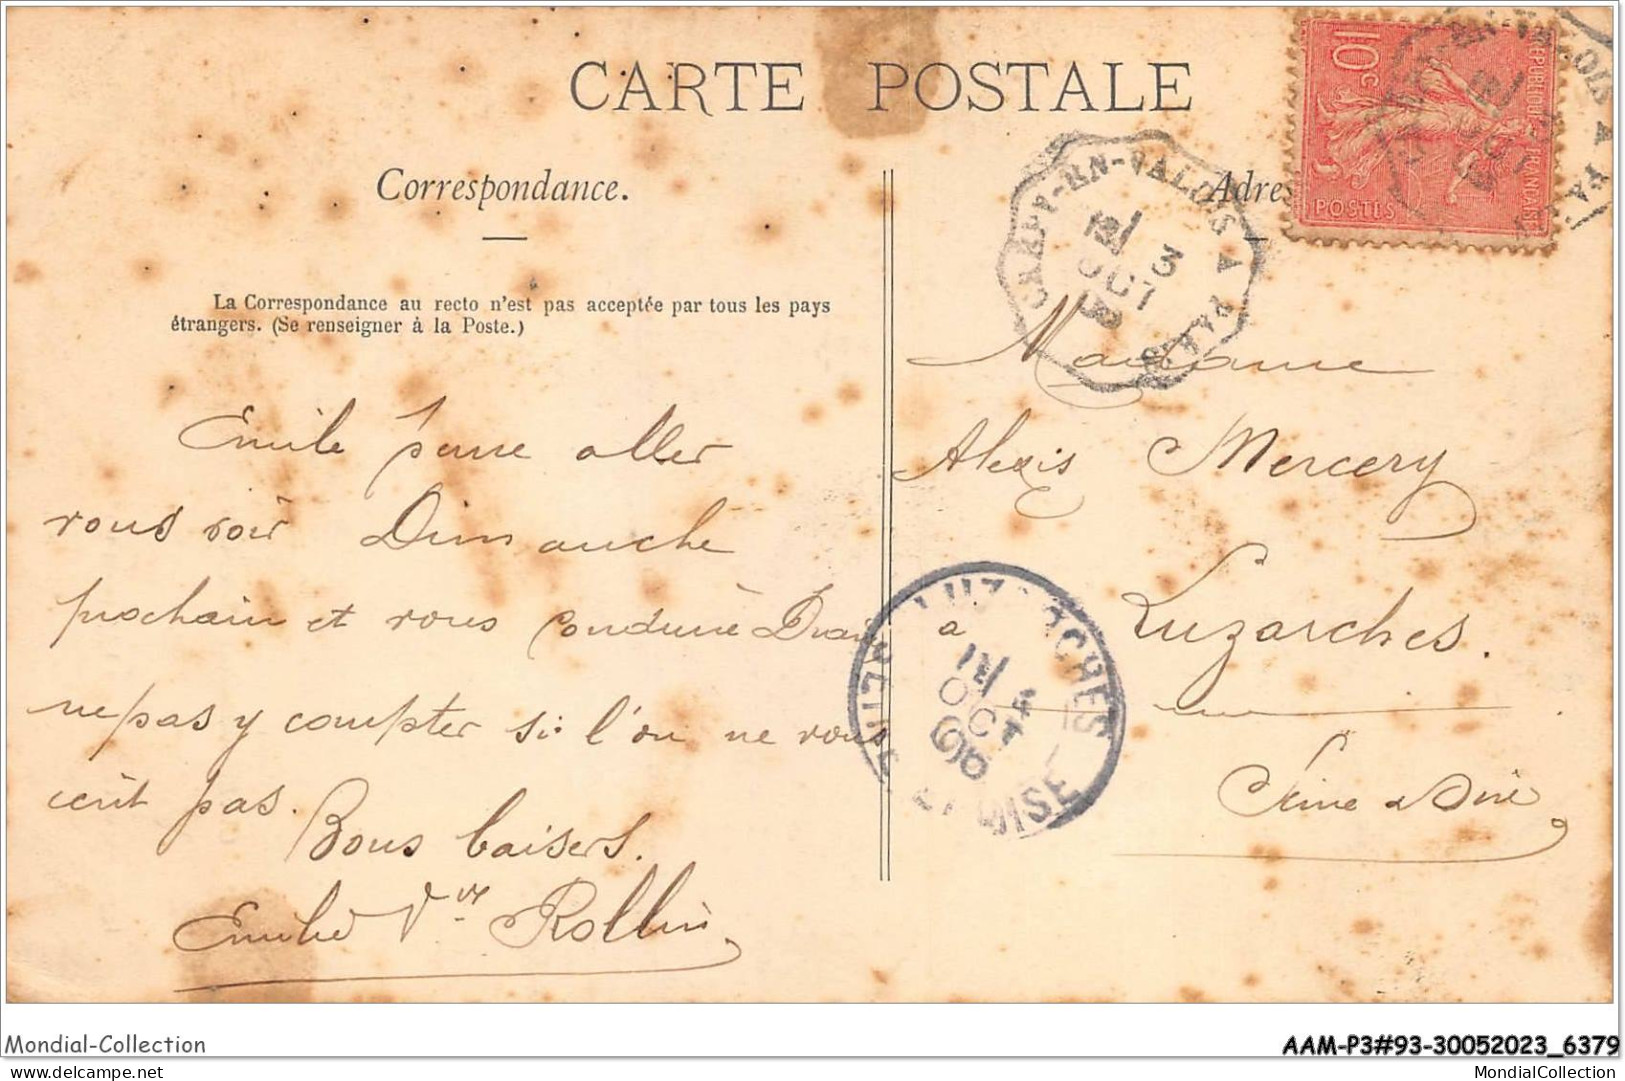 CARTE POSTALE
Correspondance.
Adres
La Correspondance au recto n'est pas acceptée par tous les pays
étrangers. (Se renseigner à la Poste.)
10 c
REPUBLIQUE FRANÇAISE
POSTES
CREPY-EN-VALOIS A PARIS
3
OCT
Emile pense aller
vous voir Dimanche
prochain et vous conduire
ne pas y compter si l'on ne vous
écrit pas.
Bons baisers.
Vve Rollin
Madame
Alexis Mercery
a Luzarches.
Seine & Oise
LUZARCHES
4
OCT
06
ET OISE
Mondial-Collection
AAM-P3#93-30052023_6379
www.delcampe.net
MondialCollection